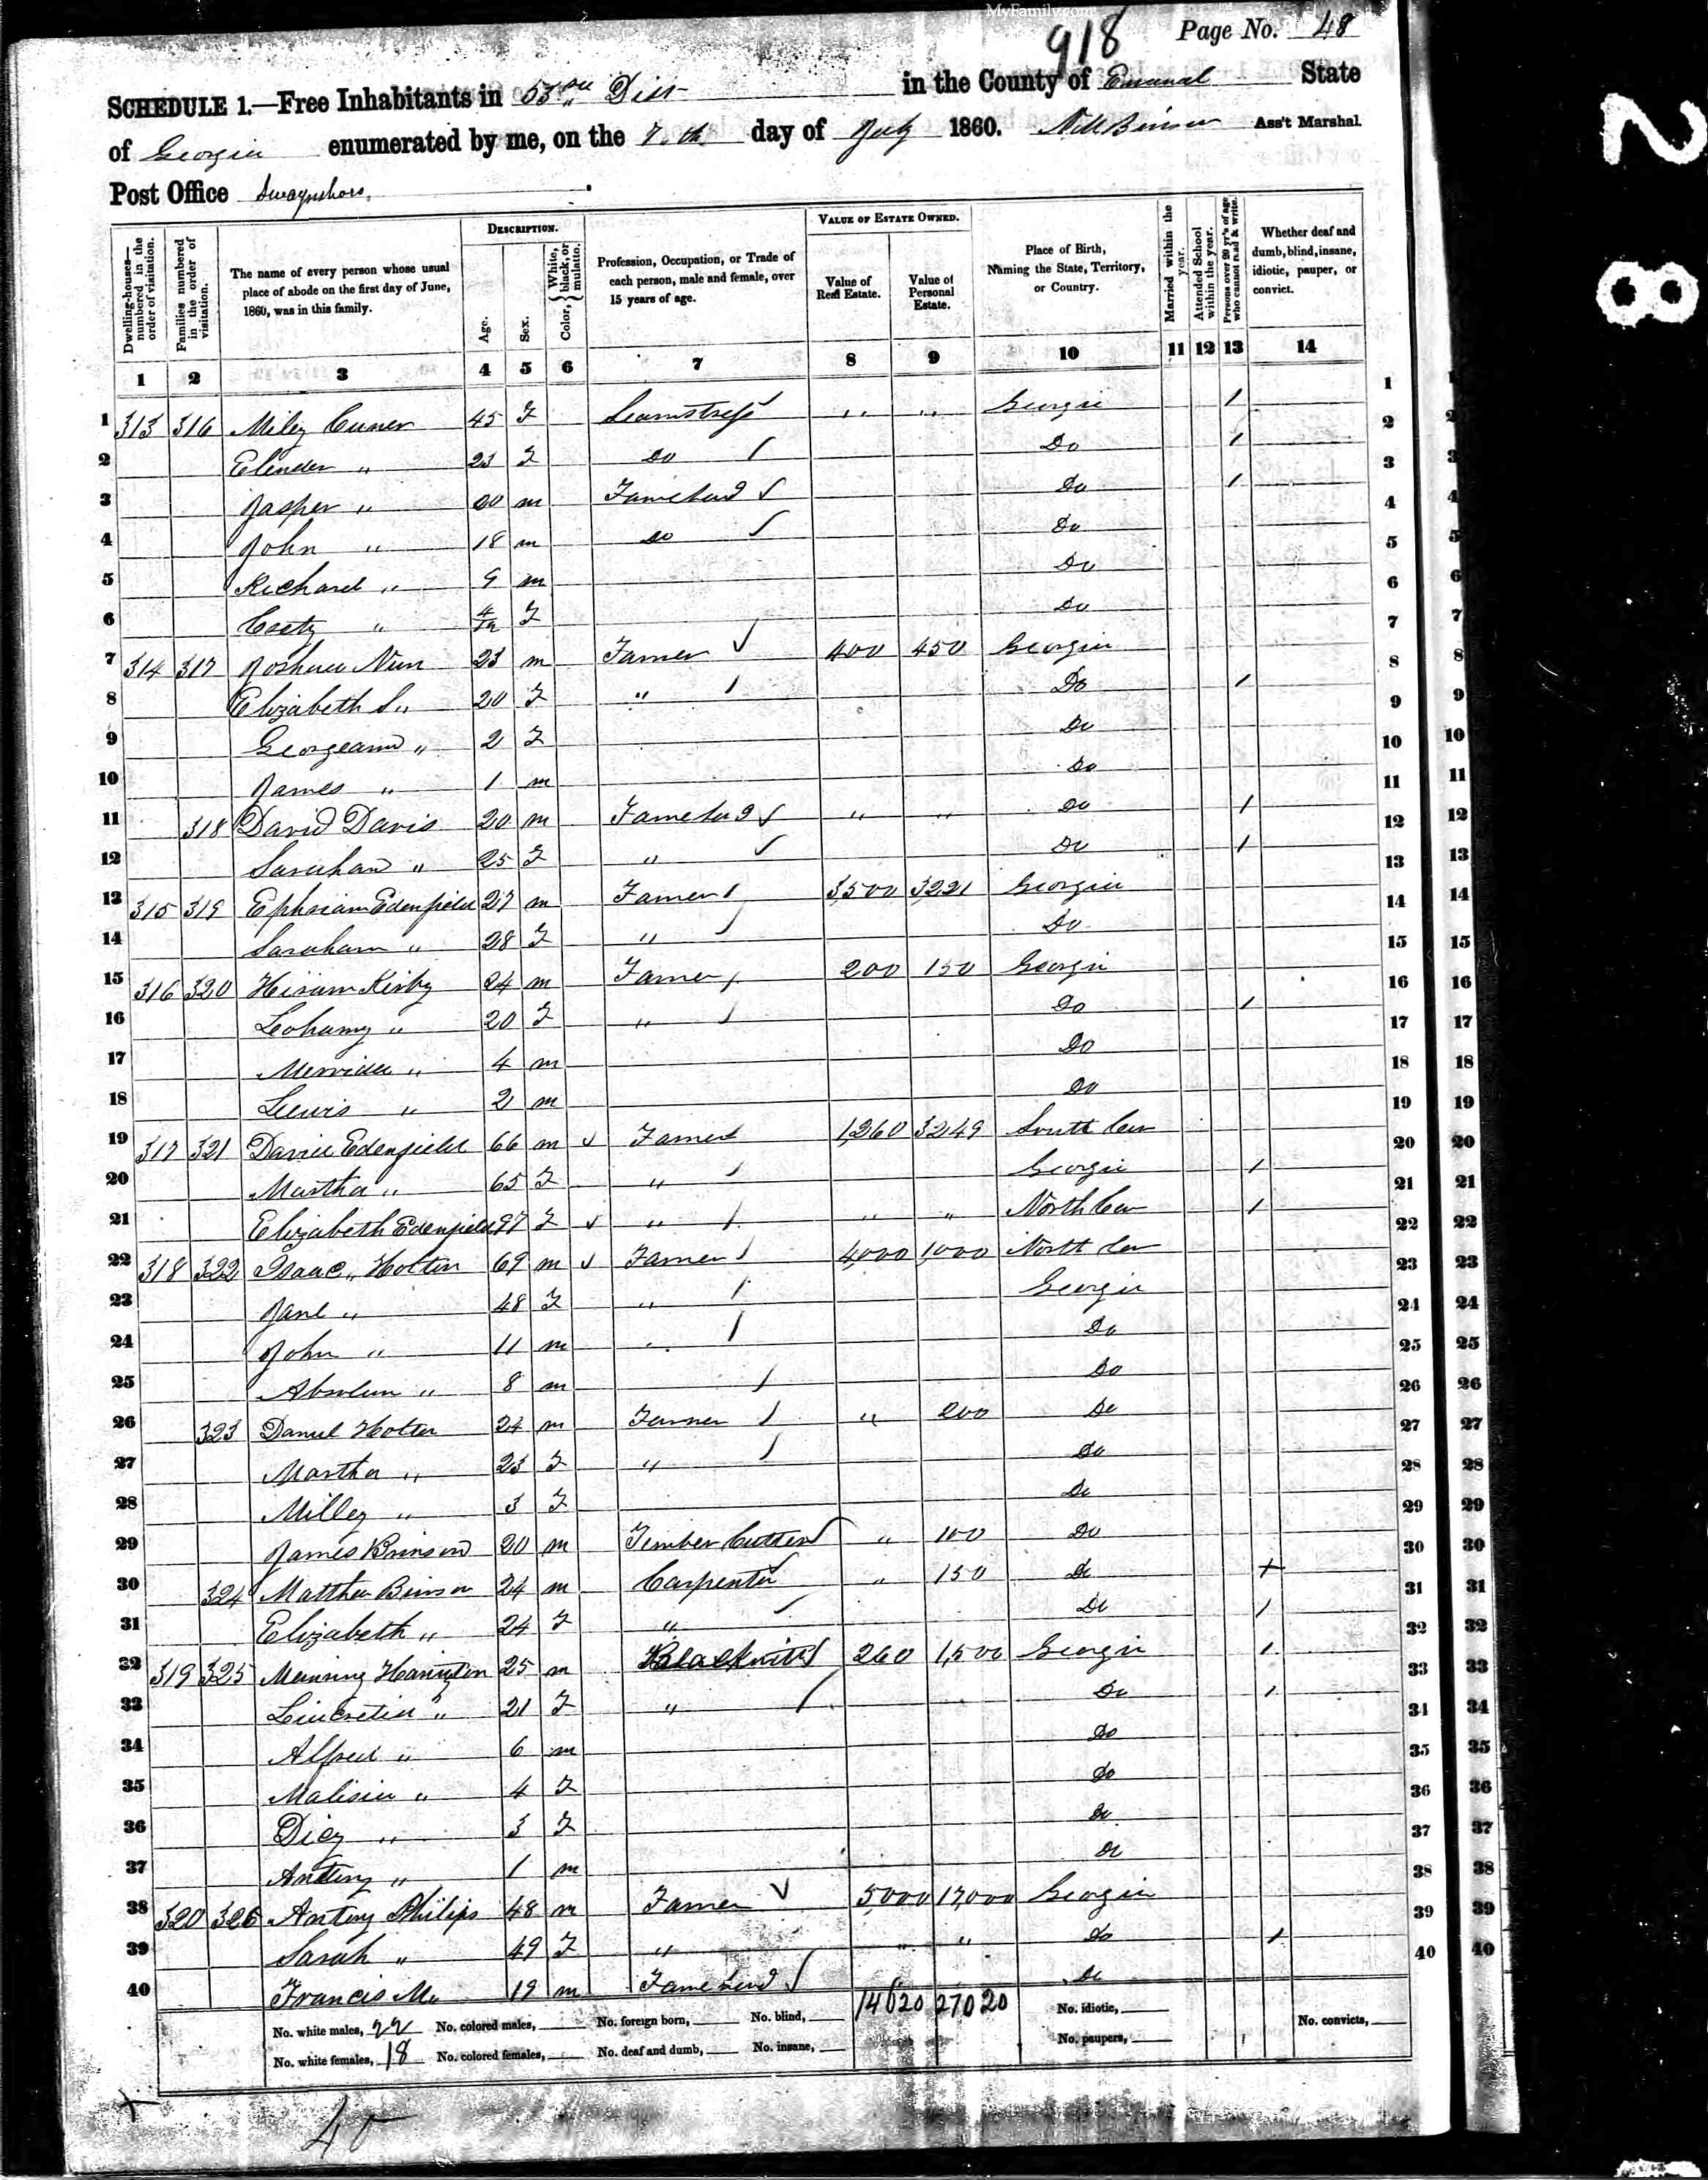 MyFamily.com
918 Page No. 48
SCHEDULE 1.—Free Inhabitants in 53rd Dist in the County of Emanuel State
of Georgia enumerated by me, on the 7th day of July 1860. Ass't Marshal.
Post Office Swaynsboro.
Dwelling-houses—numbered in the order of visitation.
Families numbered in the order of visitation.
The name of every person whose usual place of abode on the first day of June, 1860, was in this family.
DESCRIPTION.
Age.
Sex.
Color, { White, black, or mulatto.
Profession, Occupation, or Trade of each person, male and female, over 15 years of age.
VALUE OF ESTATE OWNED.
Value of Real Estate.
Value of Personal Estate.
Place of Birth, Naming the State, Territory, or Country.
Married within the year.
Attended School within the year.
Persons over 20 yr's of age who cannot read & write.
Whether deaf and dumb, blind, insane, idiotic, pauper, or convict.
1 2 3 4 5 6 7 8 9 10 11 12 13 14
1 313 316 Miley 45 F Seamstress " " Georgia / 1
2 Elender " 23 F Do / Do / 2
3 Jasper " 20 m Do / 3
4 John " 18 m Do / Do 4
5 Richard " 9 m Do 5
6 " 4/12 F Do 6
7 314 317 Joshua Nun 23 m Farmer 400 450 Georgia 7
8 Elizabeth S " 20 F " / Do / 8
9 Georgeann " 2 F Do 9
10 James " 1 m Do 10
11 318 David Davis 20 m " " Do / 11
12 Sarahan " 25 F " Do / 12
13 315 319 Ephraim Edenfield 27 m Farmer 3500 3221 Georgia 13
14 Sarahann " 28 F " Do 14
15 316 320 Hiram Kirby 24 m Farmer 200 150 Georgia 15
16 Leohamy " 20 F " Do / 16
17 " 4 m Do 17
18 Lewis " 2 m Do 18
19 317 321 David Edenfield 66 m Farmer 1,260 3249 South Car 19
20 Martha " 65 F " Georgia / 20
21 Elizabeth Edenfield 97 F " " " North Car / 21
22 318 322 Isaac Holton 69 m Farmer 4,000 1,000 North Car 22
23 Jane " 48 F " Georgia 23
24 John " 11 m Do 24
25 " 8 m Do 25
26 323 Daniel Holton 24 m Farmer " 200 Do 26
27 Martha " 23 F " Do 27
28 Milley " 3 F Do 28
29 James Brinson 20 m Timber Cutter " 100 Do 29
30 324 Matthew Brinson 24 m Carpenter " 150 Do + 30
31 Elizabeth " 24 F " Do / 31
32 319 325 25 m Blacksmith 260 1,500 Georgia / 32
33 Lucretia " 21 F " Do / 33
34 Alfred " 6 m Do 34
35 " 4 F Do 35
36 Dicy " 3 F Do 36
37 Anteny " 1 m Do 37
38 320 326 Anteny Philips 48 m Farmer 5,000 17,000 Georgia 38
39 Sarah " 49 F " " " Do / 39
40 Francis M " 19 m Do 40
14620 27020
No. white males, 22 No. colored males, No. foreign born, No. blind, No. idiotic, No. convicts,
No. white females, 18 No. colored females, No. deaf and dumb, No. insane, No. paupers,
40
28